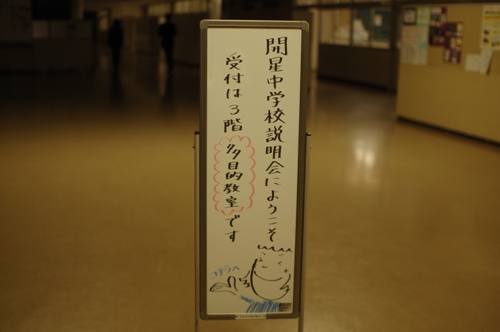 開星中学校説明会にようこそ
受付は3階多目的教室です
コチラへ